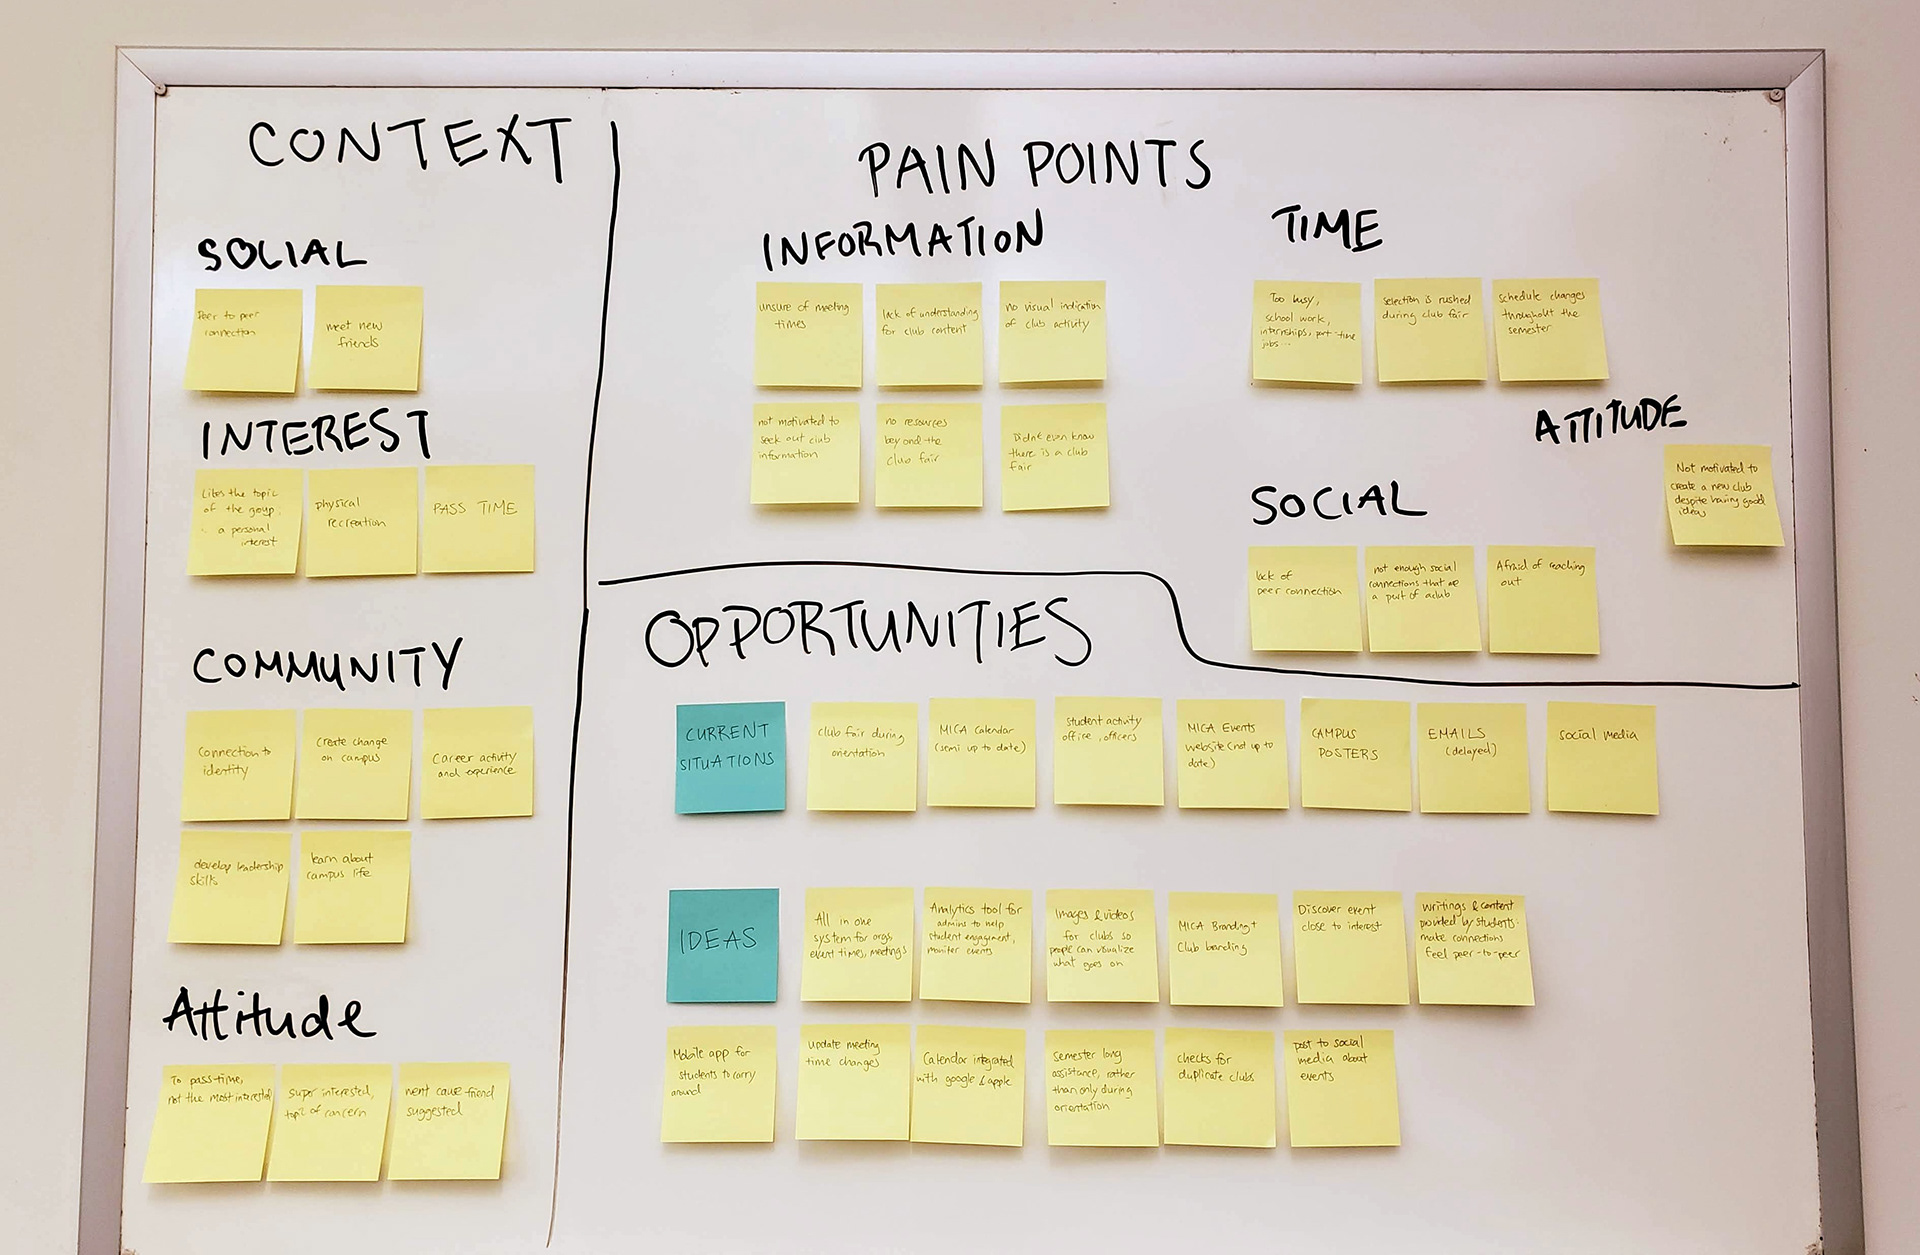 CONTEXT
SOCIAL
Peer to peer
connection
meet new
friends
INTEREST
Likes the topic
of the group,
a personal
interest
physical
recreation
PASS TIME
COMMUNITY
Connection to
identity
Create change
on campus
Career activity
and experience
develop leadership
skills
learn about
campus life
Attitude
To pass-time,
not the most interested
super interested,
topic of concern
went cause friend
suggested
PAIN POINTS
INFORMATION
unsure of meeting
times
lack of understanding
for club content
no visual indication
of club activity
not motivated to
seek out club
information
no resources
beyond the
club fair
Didn't even know
there is a club
fair
TIME
Too busy,
school work,
internships, part-time
jobs...
Selection is rushed
during club fair
schedule changes
throughout the
semester
ATTITUDE
Not motivated to
create a new club
despite having good
ideas
SOCIAL
lack of
peer connection
not enough social
connections that are
a part of a club
Afraid of reaching
out
OPPORTUNITIES
CURRENT
SITUATIONS
club fair during
orientation
MICA Calendar
(semi up to date)
Student activity
office, officers
MICA Events
website (not up to
date)
CAMPUS
POSTERS
EMAILS
(delayed)
social media
IDEAS
All in one
system for orgs,
event times, meetings
Analytics tool for
admins to help
student engagment,
moniter events
Images & videos
for clubs so
people can visualize
what goes on
MICA Branding +
Club branding
Discover event
close to interest
Writings & content
provided by students.
make connections
feel peer-to-peer
Mobile app for
students to carry
around
update meeting
time changes
Calendar integrated
with google & apple
Semester long
assistance, rather
than only during
orientation
checks for
duplicate clubs
post to social
media about
events